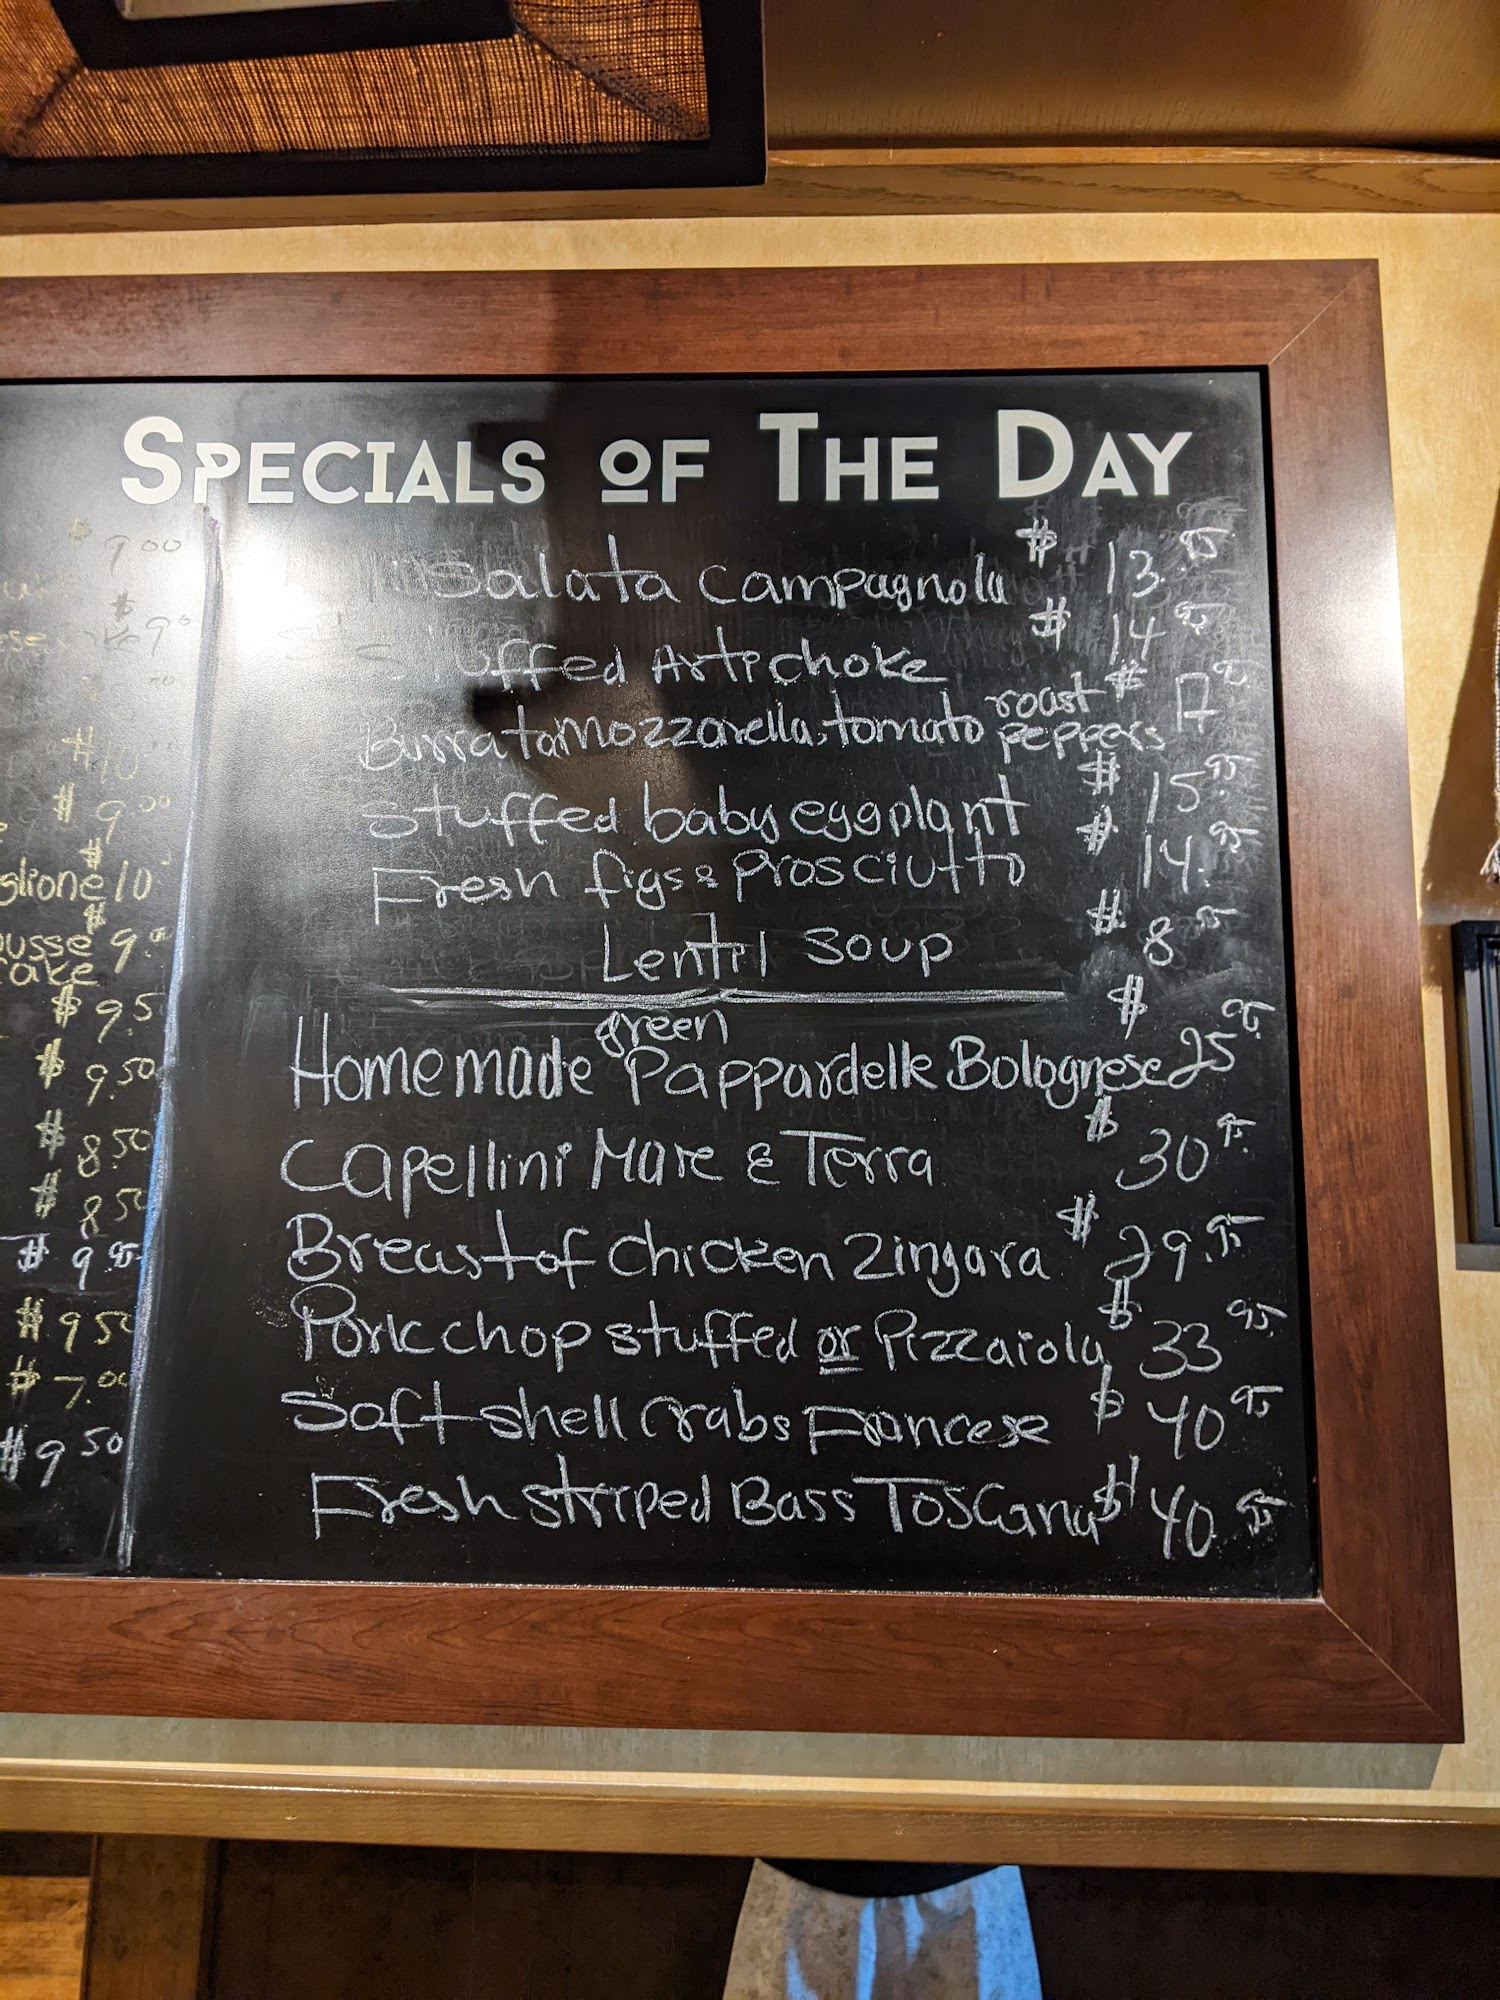 SPECIALS OF THE DAY
$ 9.00
$ 9.0
$ 10
$ 9.00
glione $ 10
$ 9.00
cake
$ 9.5
$ 9.50
$ 8.50
$ 8.50
$ 9.95
$ 9.50
$ 7.00
$ 9.50
insalata campagnola $ 13.95
Stuffed Artichoke $ 14.95
Burrata Mozzarella, tomato roast peppers $ 17.95
Stuffed baby eggplant $ 15.95
Fresh figs & Prosciutto $ 14.95
Lentil Soup $ 8.95
Homemade green Pappardelle Bolognese $ 25.95
Capellini Mare & Terra $ 30.95
Breast of Chicken Zingara $ 29.95
Pork chop stuffed or Pizzaiola $ 33.95
Soft shell Crabs Francese $ 40.95
Fresh striped Bass Toscana $ 40.95